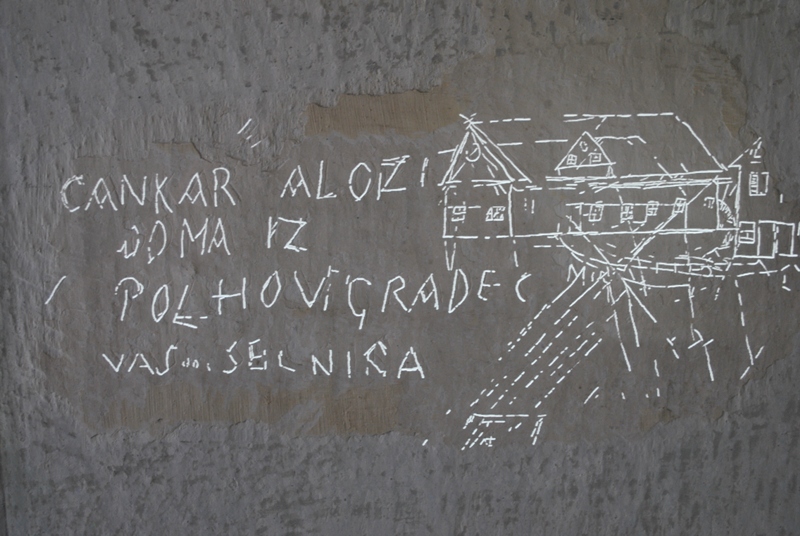 CANKAR ALOJZ
DOMA IZ
POLHOVIGRADEC
VAS SELNICA